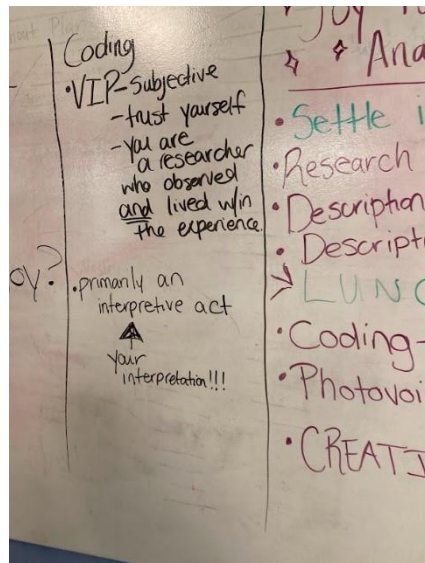 Coding
• VIP-subjective
- trust yourself
- you are
a researcher
who observed
and lived w/in
the experience.
• primarily an
interpretive act
your
interpretation!!!
oy?
Joy
Ana
• Settle i
• Research
• Description
• Descript
LUNC
• Coding-
• Photovoi
• CREATI